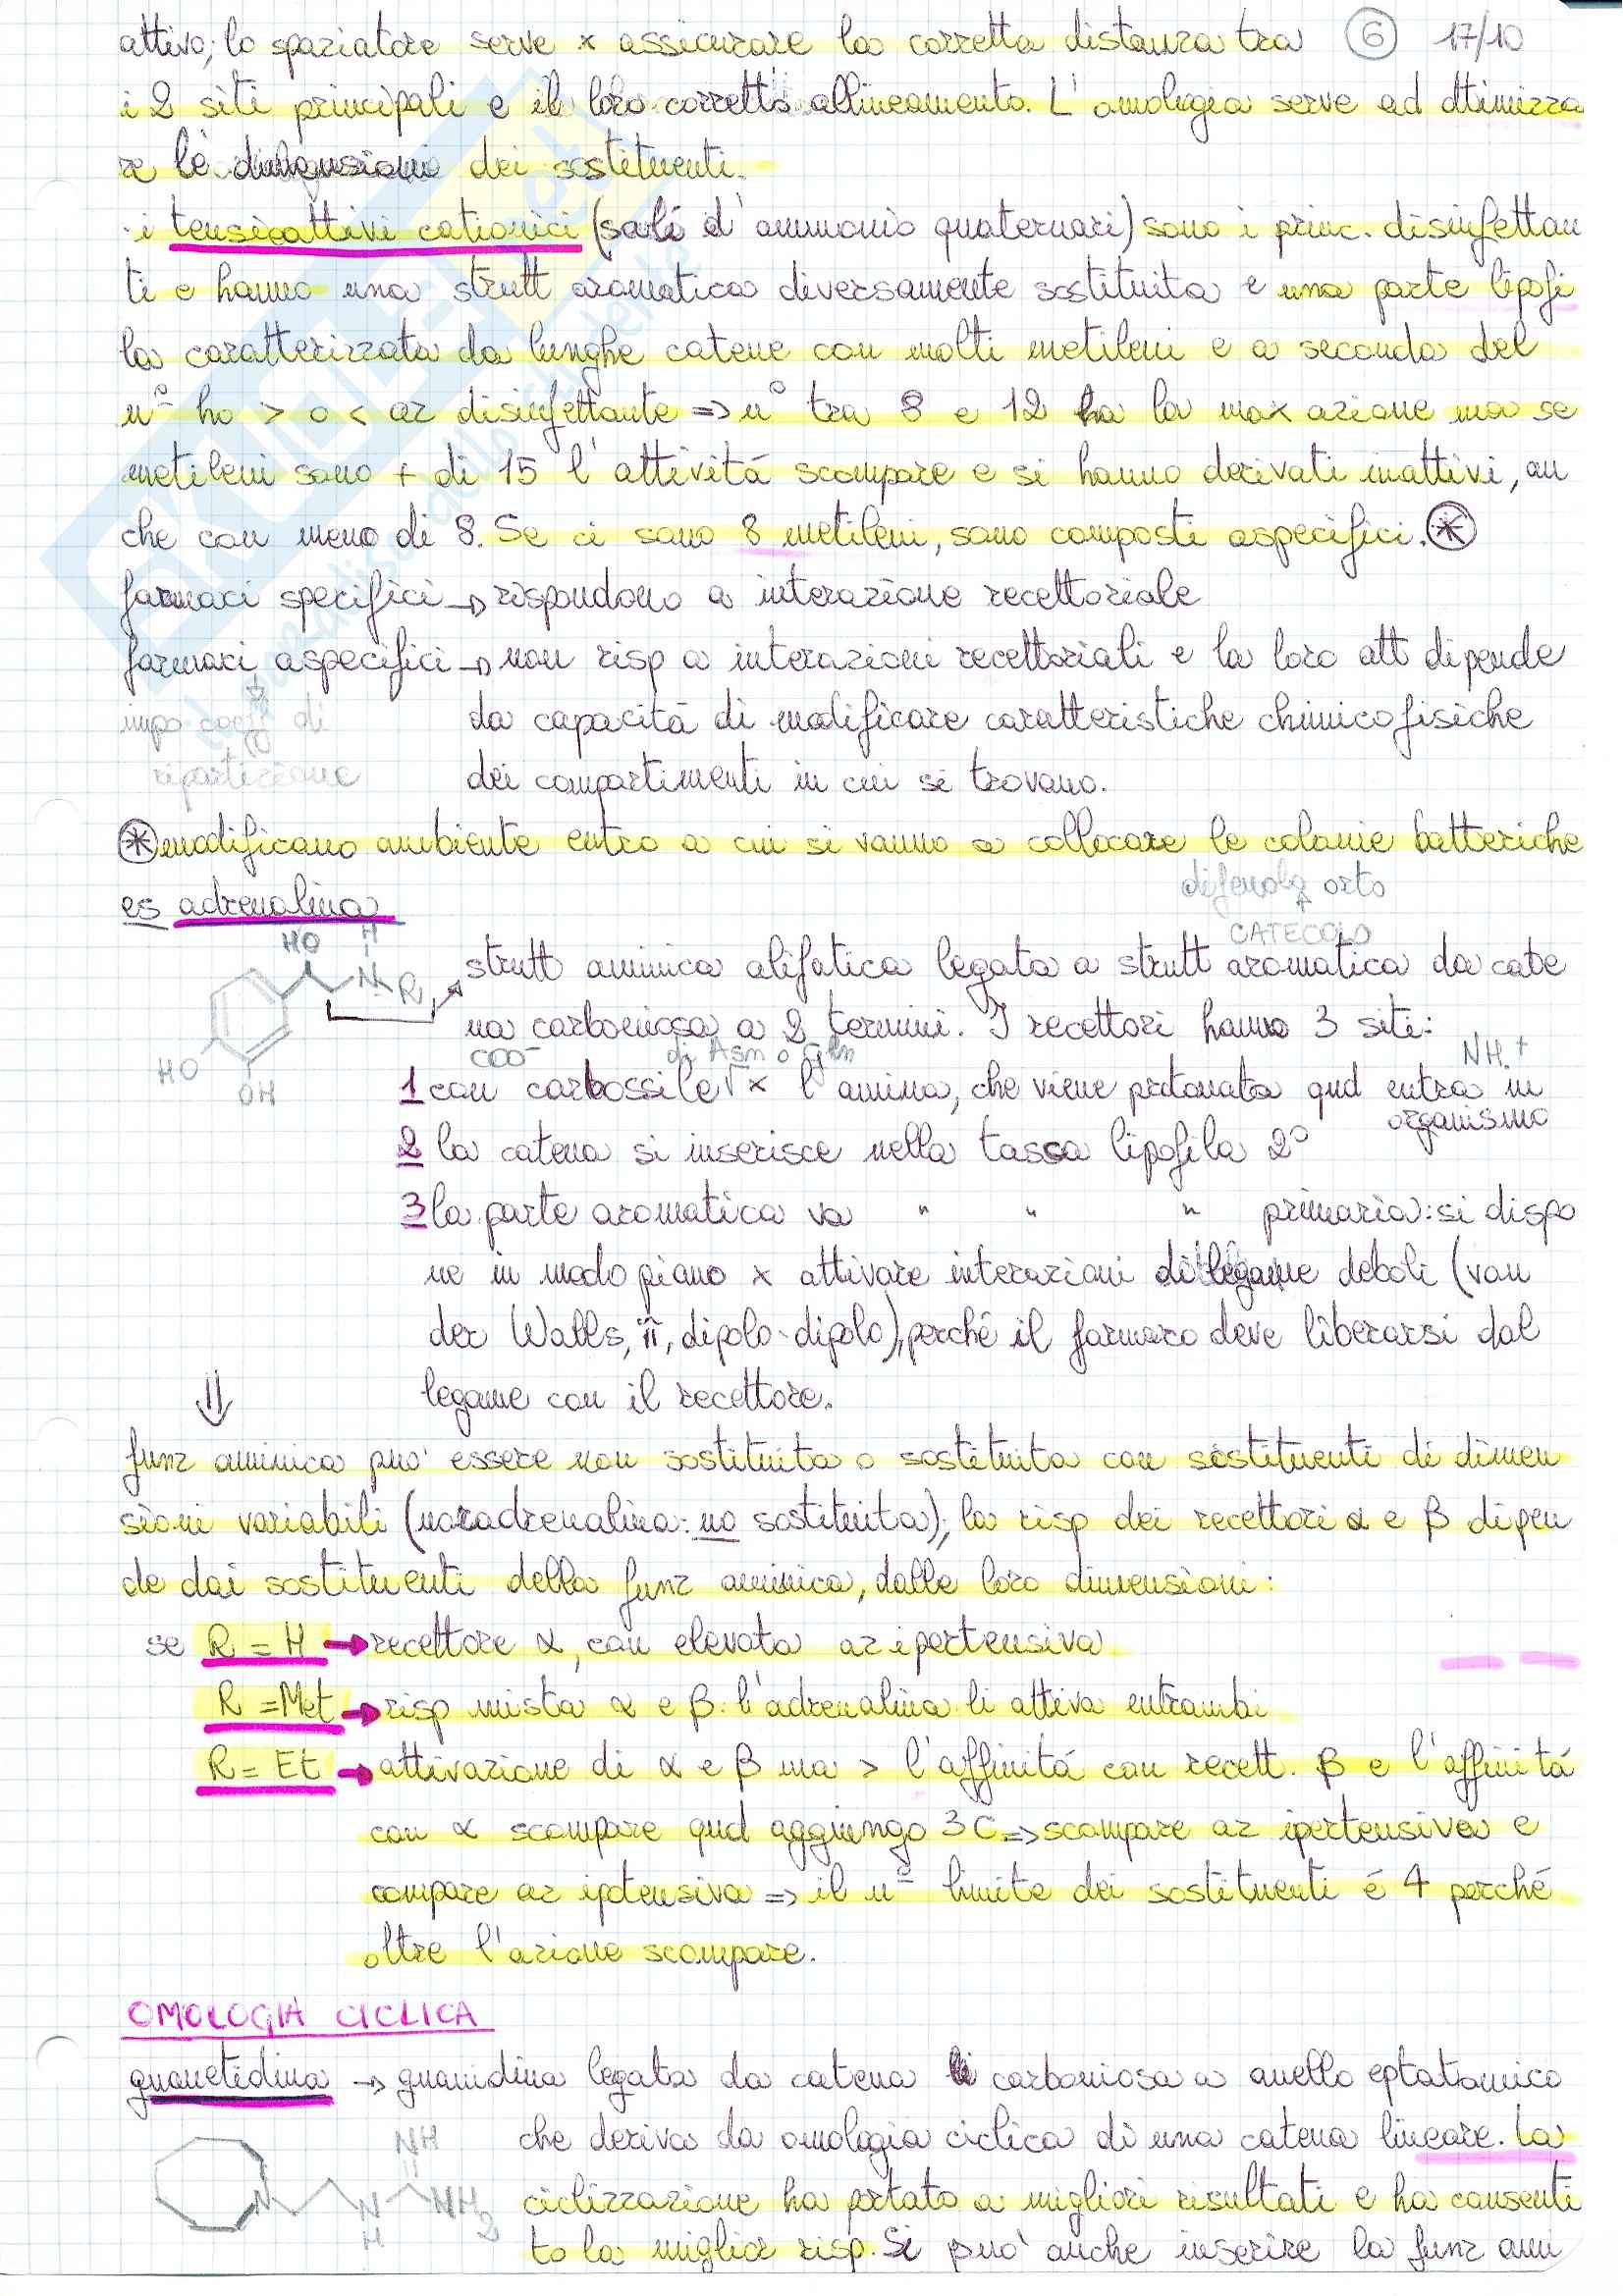 attivo; lo spaziatore serve x assicurare la corretta distanza tra ⑥ 17/10
i 2 siti principali e il loro corretto allineamento. L'omologia serve ad ottimizza
re le dimensioni dei sostituenti.
i tensioattivi cationici (sali d'ammonio quaternari) sono i princ. disinfettan
ti e hanno una strutt aromatica diversamente sostituita e una parte lipofi
la caratterizzata da lunghe catene con molti metileni e a seconda del
n° ho > o < az disinfettante => n° tra 8 e 12 ha la max azione ma se
metileni sono + di 15 l'attività scompare e si hanno derivati inattivi, an
che con meno di 8. Se ci sono 8 metileni, sono composti aspecifici. ⊛
farmaci specifici → rispondono a interazione recettoriale
farmaci aspecifici → non risp a interazioni recettoriali e la loro att dipende
impo coeff di
ripartizione
da capacità di modificare caratteristiche chimicofisiche
dei compartimenti in cui si trovano.
⊛ modificano ambiente entro a cui si vanno a collocare le colonie batteriche
difenolo orto
CATECOLO
es adrenalina
HO H
N R
HO OH
strutt aminica alifatica legata a strutt aromatica da cate
na carboniosa a 2 termini. I recettori hanno 3 siti:
COO⁻ di Asn o Gln NH.⁺
1 con carbossile √ x l'amina, che viene protonata qnd entra in
organismo
2 la catena si inserisce nella tasca lipofila 2°
3 la parte aromatica va " " " primaria: si dispo
ne in modo piano x attivare interazioni di legame deboli (van
der Walls, π, dipolo-dipolo), perché il farmaco deve liberarsi dal
legame con il recettore.
⇓
funz aminica può essere non sostituita o sostituita con sostituenti di dimen
sioni variabili (noradrenalina: no sostituita), la risp dei recettori α e β dipen
de dai sostituenti della funz aminica, dalle loro dimensioni:
se R = H → recettore α, con elevata az ipertensiva
R = Met → risp mista α e β: l'adrenalina li attiva entrambi
R = Et → attivazione di α e β ma > l'affinità con recett. β e l'affinità
con α scompare qnd aggiungo 3C => scompare az ipertensiva e
compare az ipotensiva => il n° limite dei sostituenti é 4 perché
oltre l'azione scompare.
OMOLOGIA CICLICA
guanetidina → guanidina legata da catena carboniosa a anello eptatomico
che deriva da omologia ciclica di una catena lineare. La
N N H NH NH2
ciclizzazione ha portato a migliori risultati e ha consenti
to la miglior risp. Si può anche inserire la funz ami